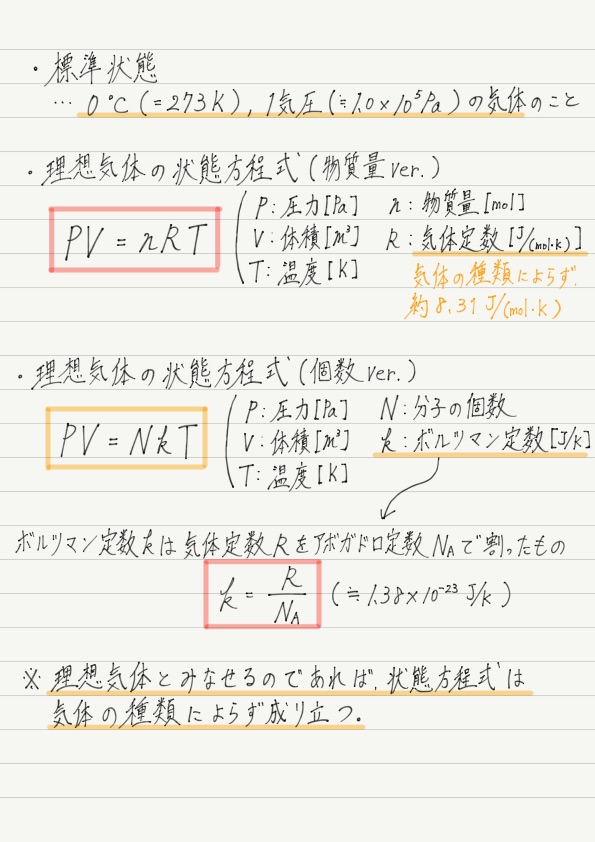 ・標準状態
… 0℃ (=273K), 1気圧(≒1.0×10⁵Pa)の気体のこと
・理想気体の状態方程式(物質量ver.)
PV = nRT
P:圧力[Pa] n:物質量[mol]
V:体積[m³] R:気体定数[J/(mol・K)]
T:温度[K]
気体の種類によらず、
約8.31 J/(mol・K)
・理想気体の状態方程式(個数ver.)
PV = NkT
P:圧力[Pa] N:分子の個数
V:体積[m³] k:ボルツマン定数[J/K]
T:温度[K]
ボルツマン定数kは気体定数Rをアボガドロ定数NAで割ったもの
k = R/NA (≒1.38×10⁻²³ J/K)
※理想気体とみなせるのであれば、状態方程式は
気体の種類によらず成り立つ。